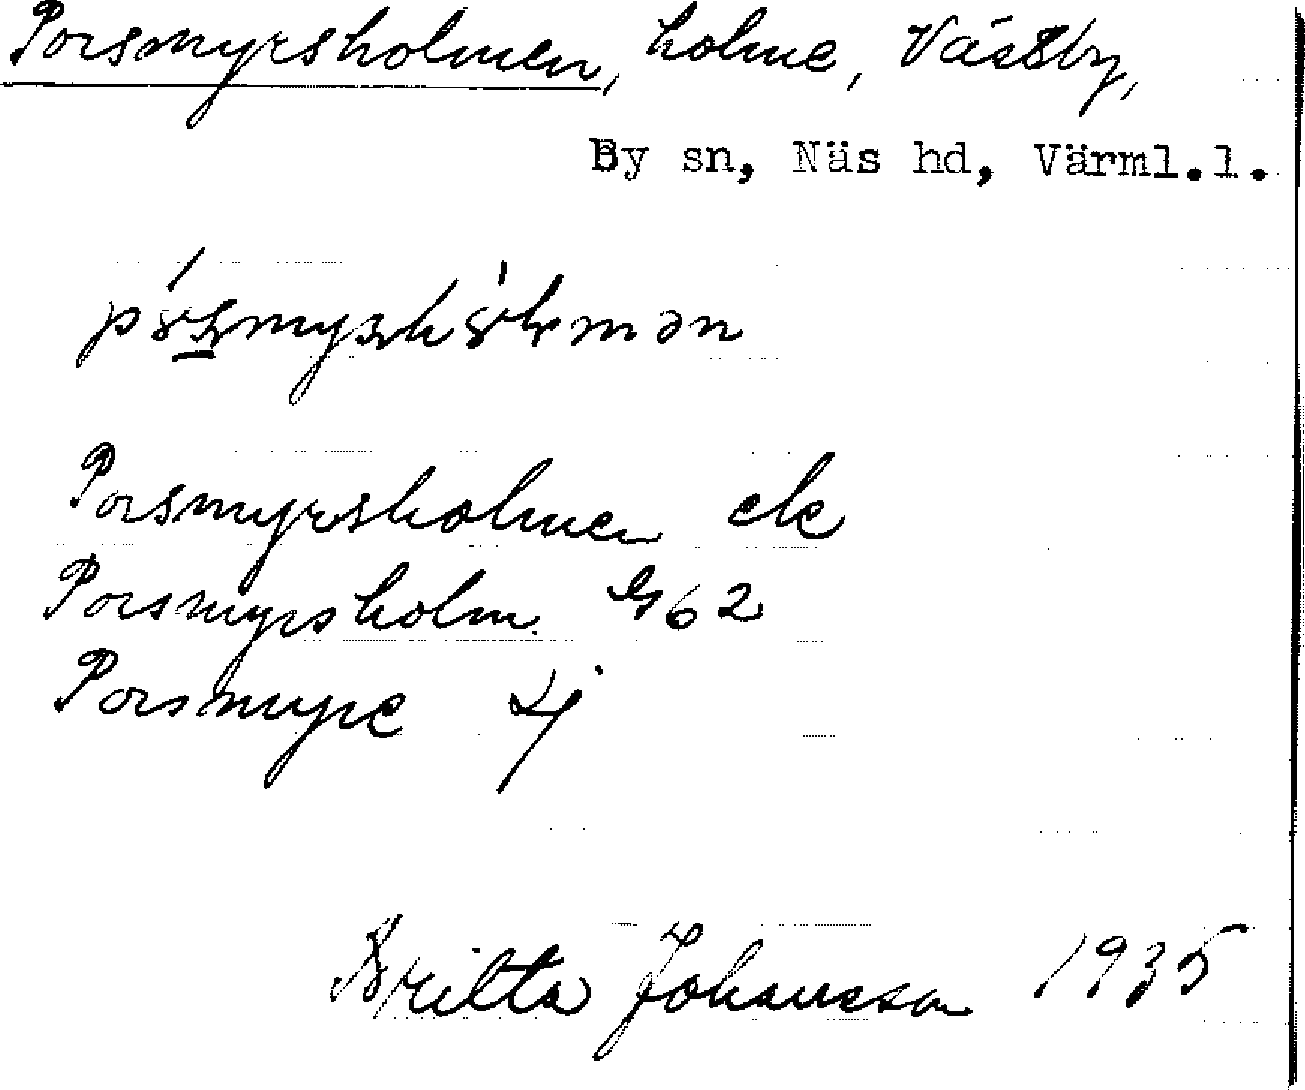 Porsmyrsholmen, holme, Västby,
By sn, Näs hd, Värml.l.
Porsmyrsholmen ek
Porsmyrsholm. G62
Porsmyre
Britta Johansson 1935